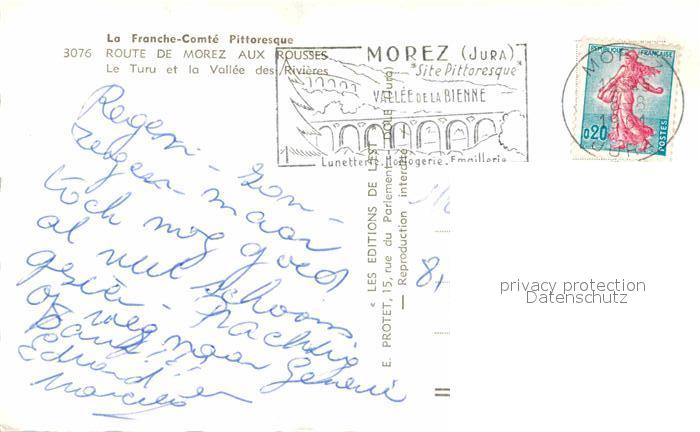 La Franche-Comté Pittoresque
3076 ROUTE DE MOREZ AUX ROUSSES
Le Turu et la Vallée des Rivières
MOREZ (JURA)
"Site Pittoresque"
VALLÉE DE LA BIENNE
Lunetterie. Horlogerie. Emaillerie
REPUBLIQUE FRANÇAISE
0,20
POSTES
Regen - zon -
regen - maar
toch nog goed
al veel schoons
gezien - Prachtig
op weg naar Genève
Edward en
« LES EDITIONS DE L'EST
E. PROTET, 15, rue du Parlement
— Reproduction interdite —
8,
privacy protection
Datenschutz